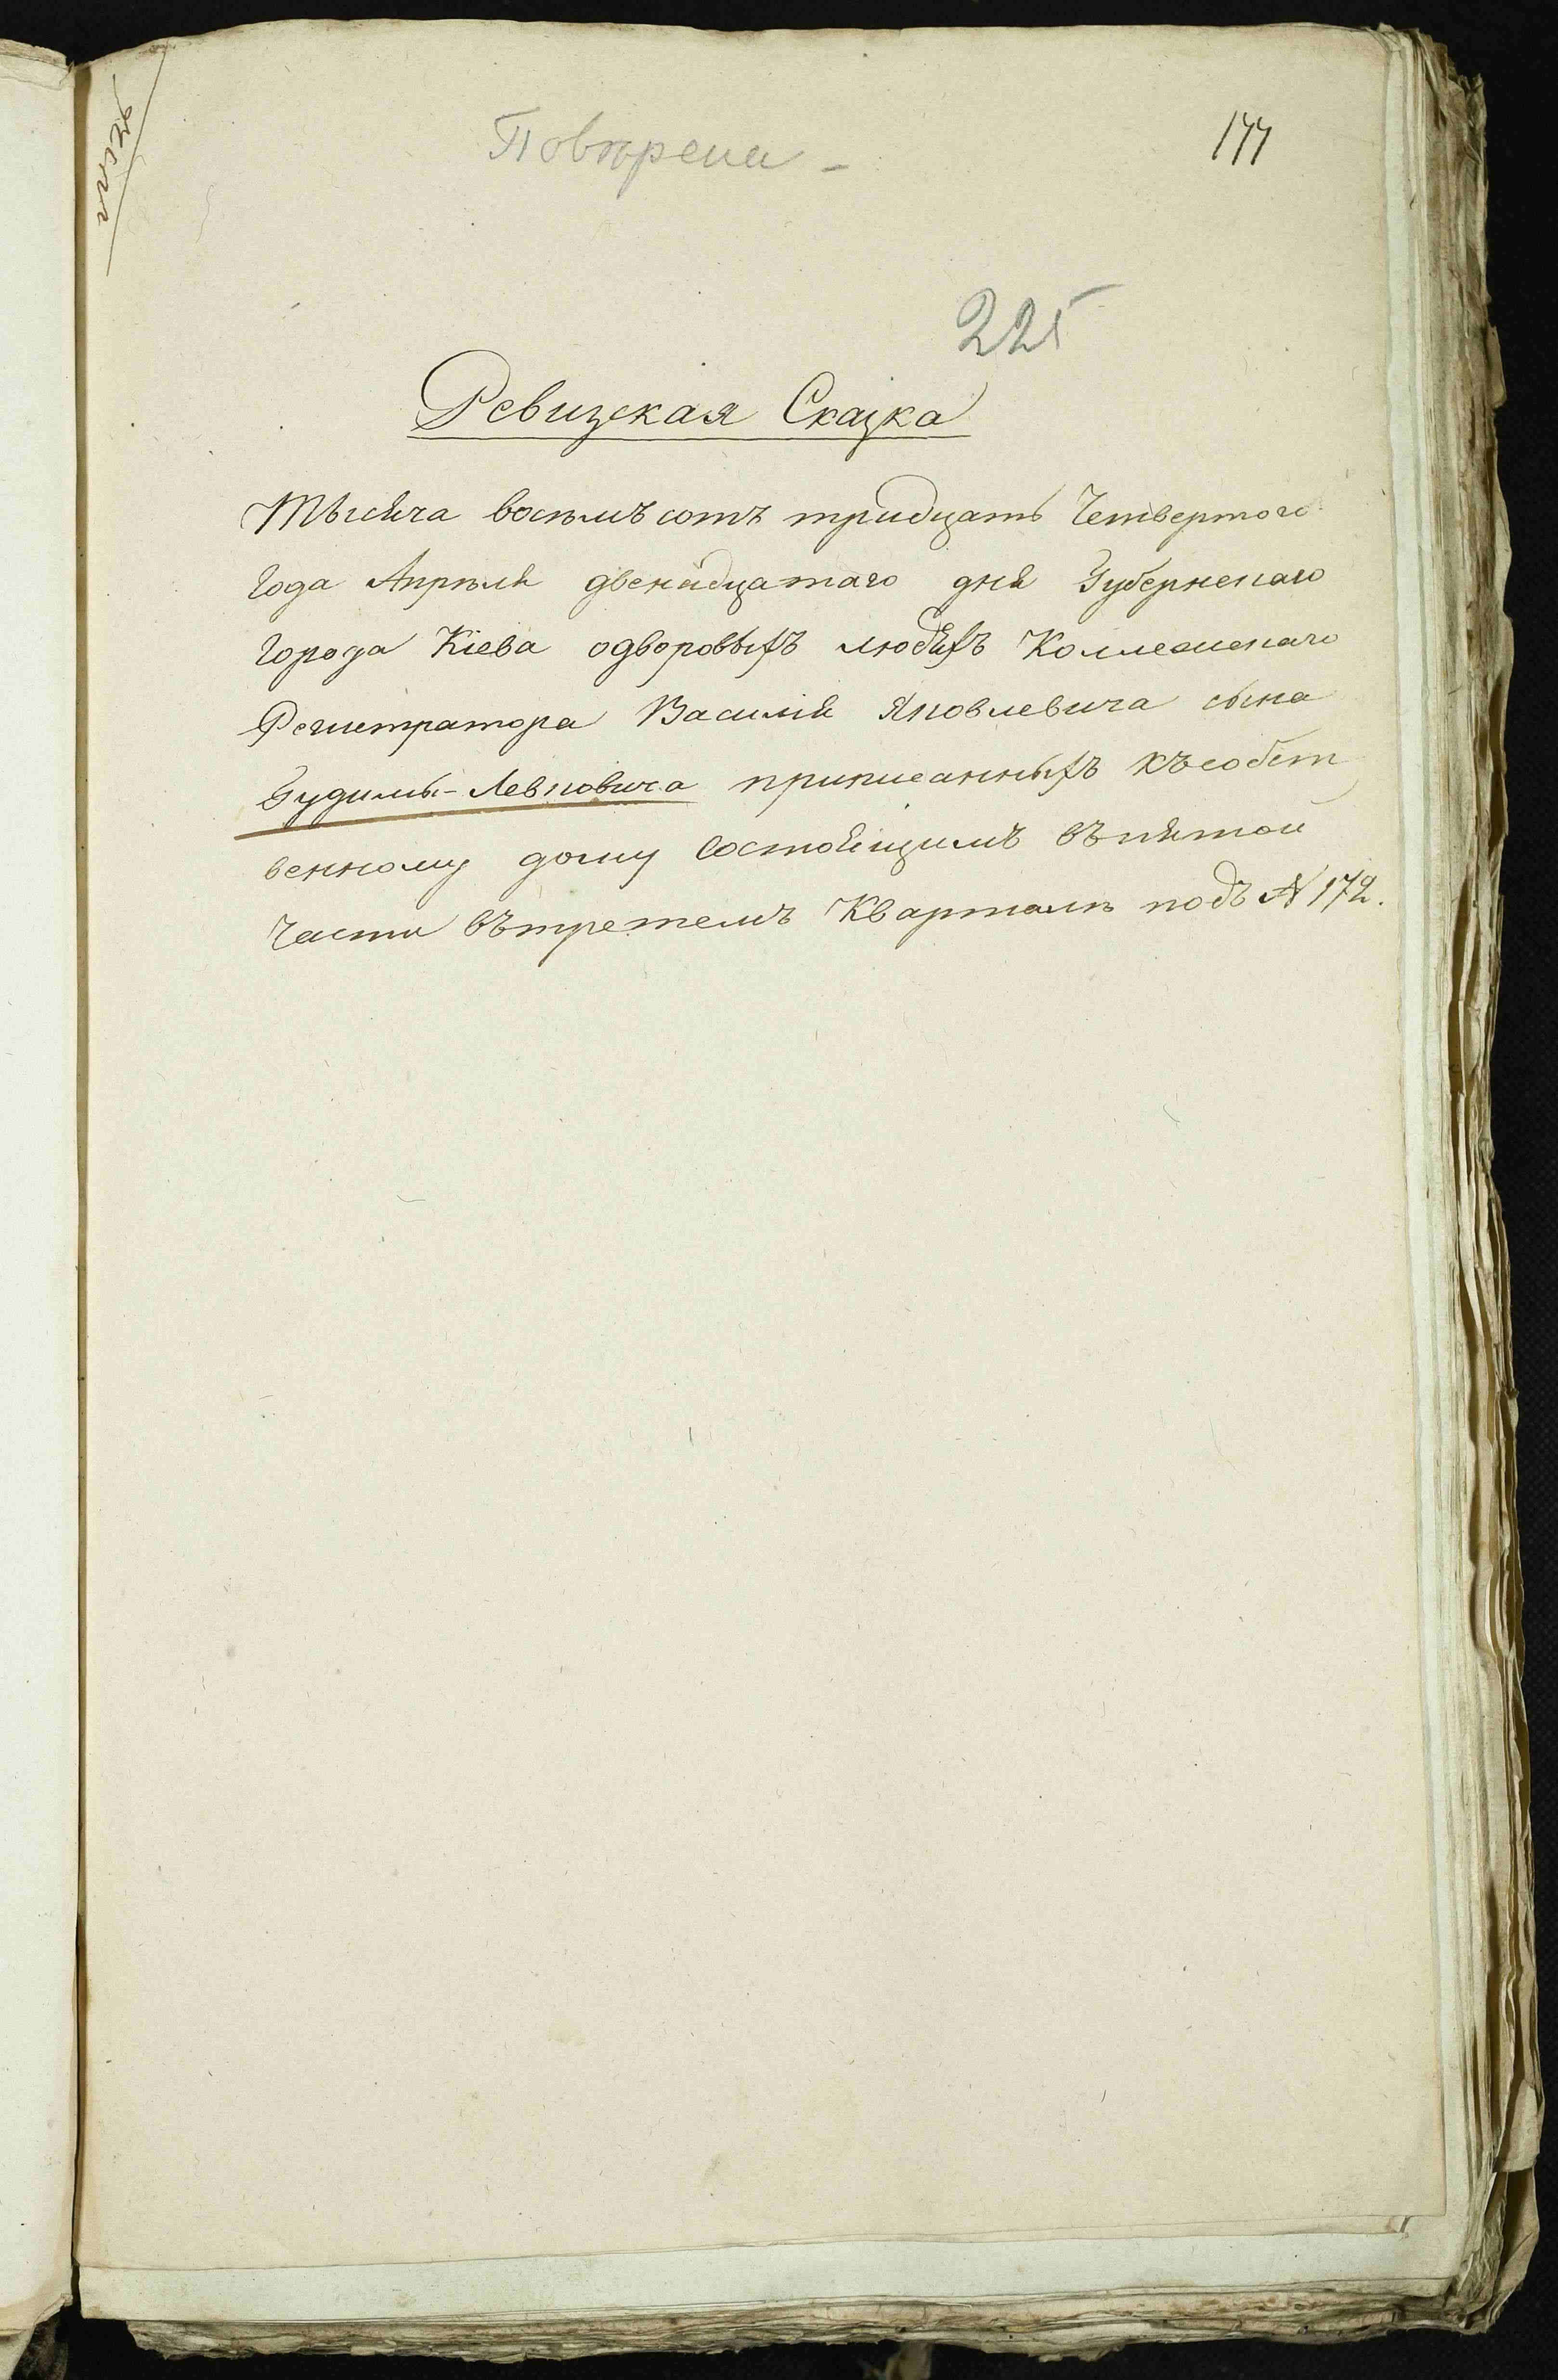 Повѣрена -
177
225
Ревизская Сказка
Тысяча восѣмъ сотъ тридцать Четвертого
Года Апрѣля двенадцатаго дня Губернскаго
Города Кіева одворовыхъ людяхъ Коллежскаго
Регистратора Василія Яковлевича сына
Гудимы-Левковича приписанныхъ къ собст
венному дому Состоящимъ въ пятой
Части въ третемъ Кварталѣ подъ N 172.